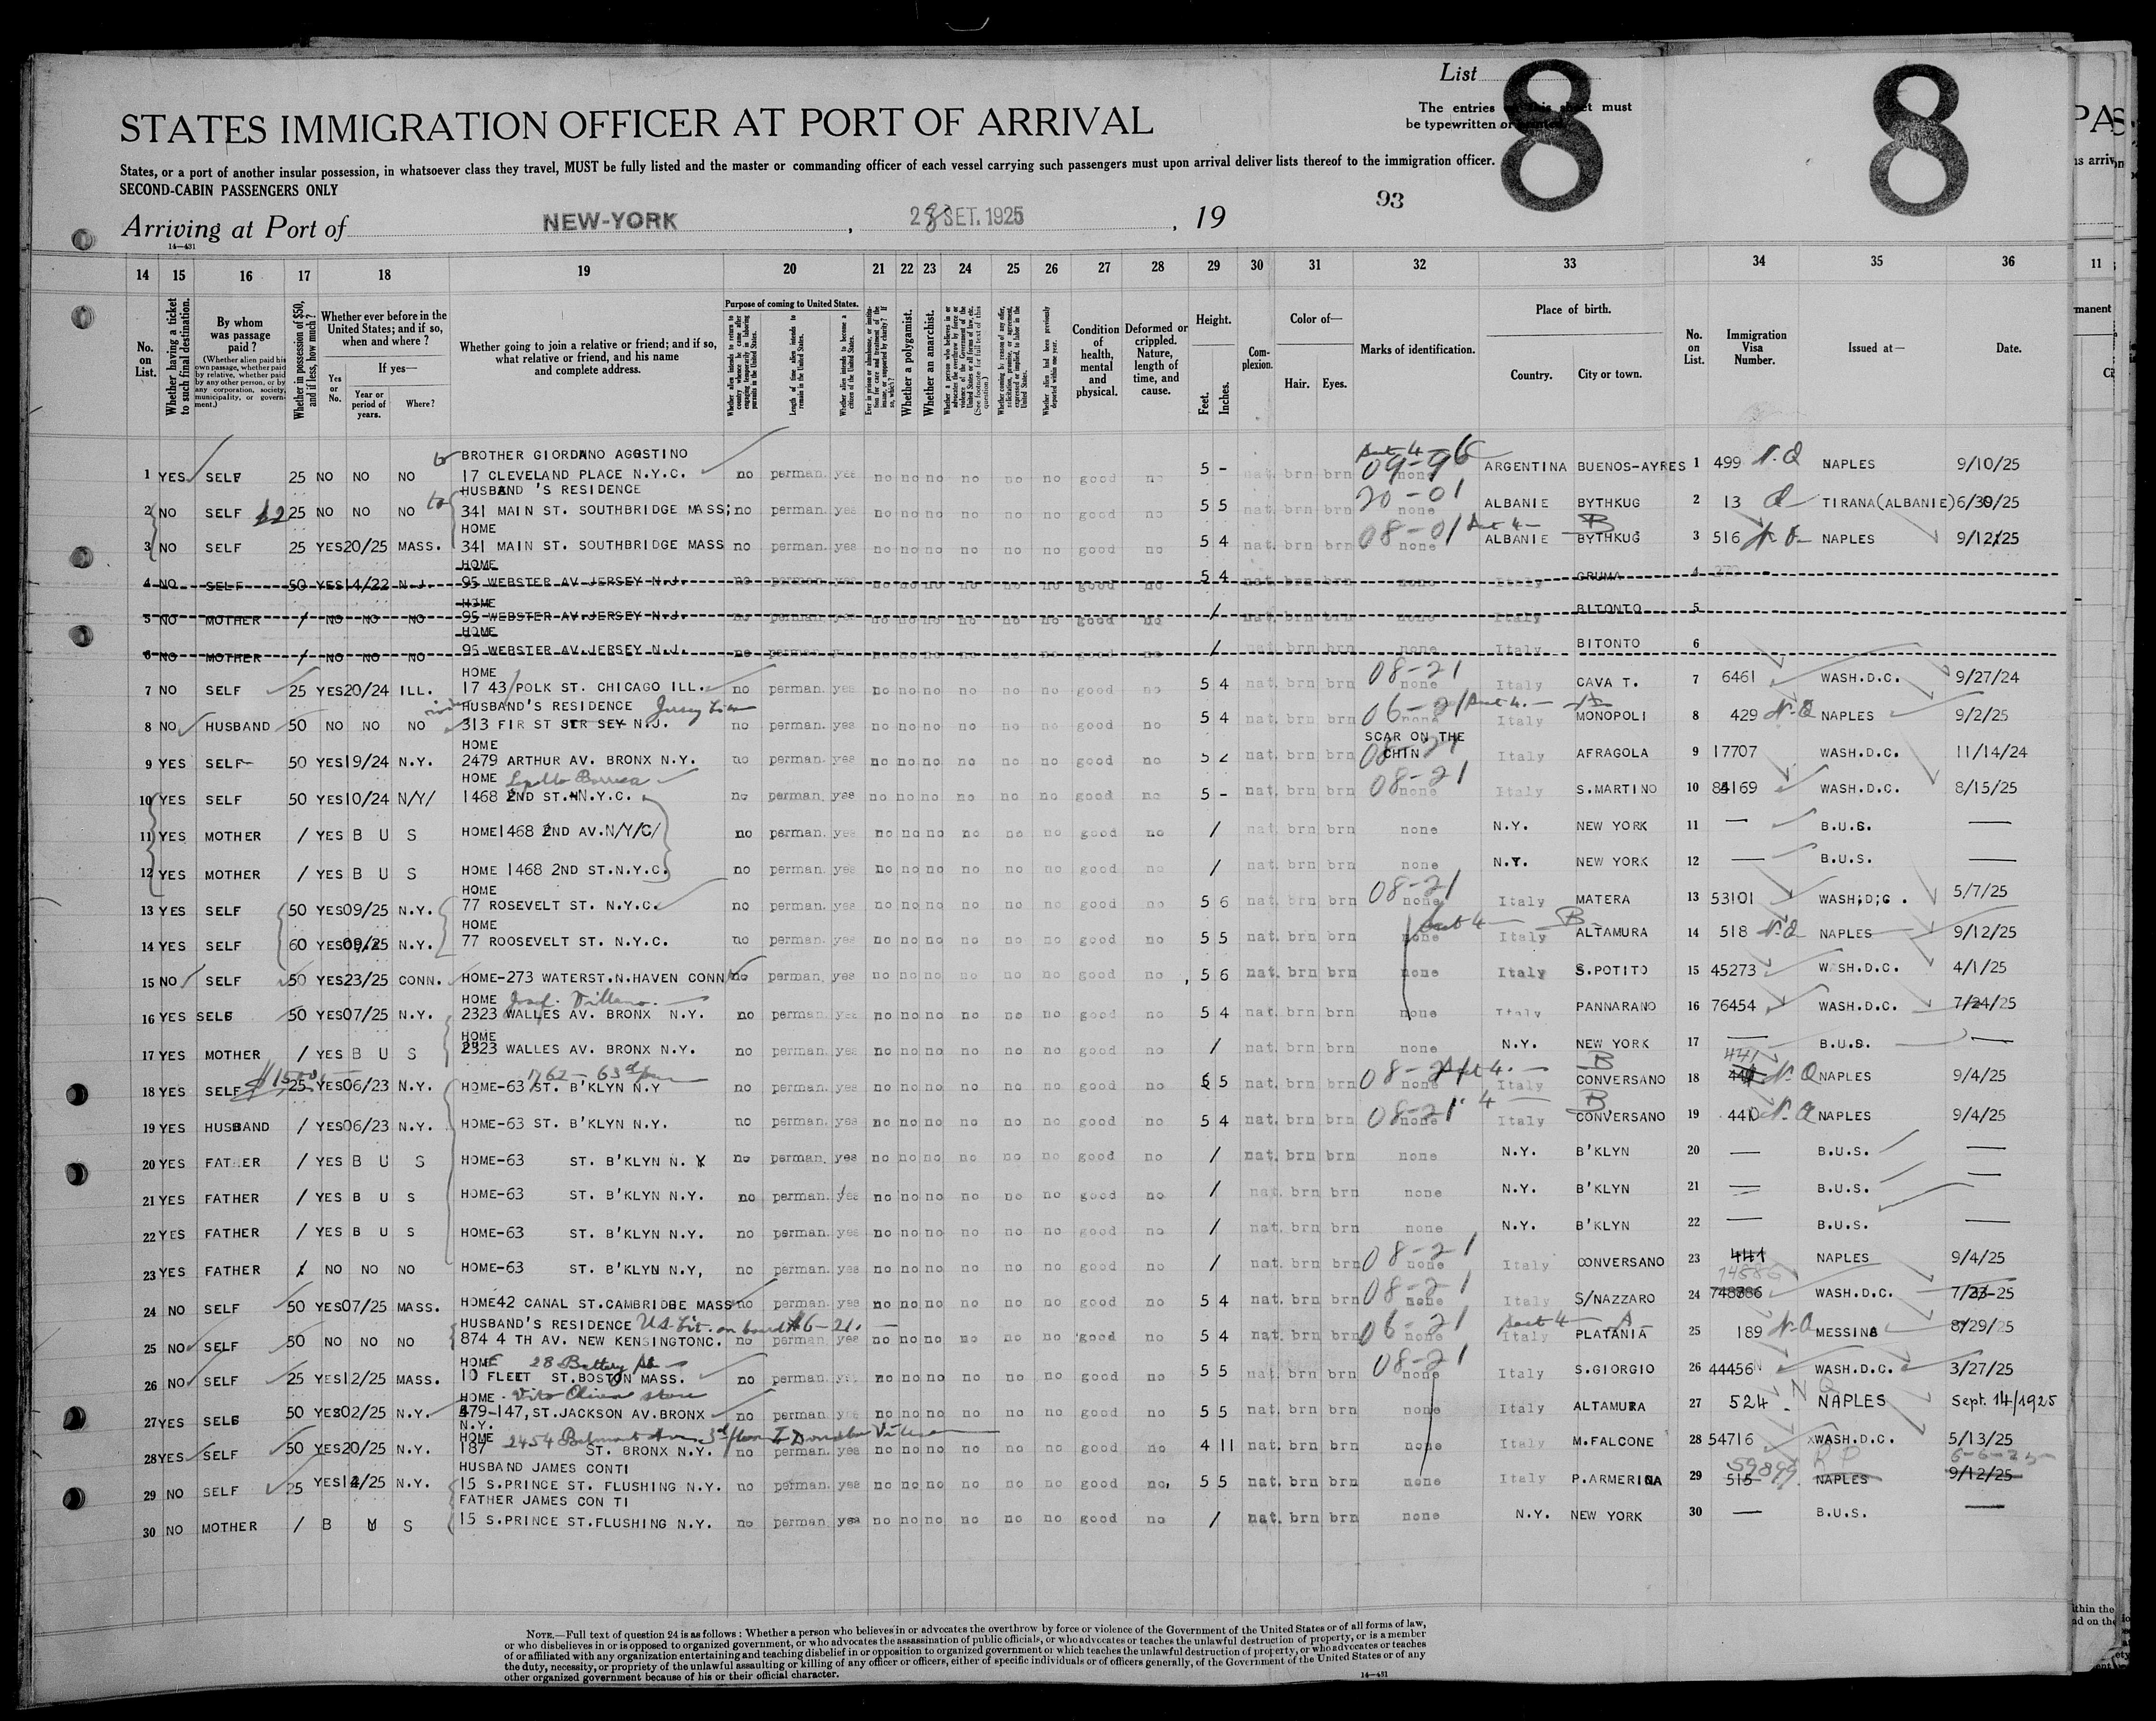 List 8
8
The entries on this sheet must
be typewritten or printed.
STATES IMMIGRATION OFFICER AT PORT OF ARRIVAL
States, or a port of another insular possession, in whatsoever class they travel, MUST be fully listed and the master or commanding officer of each vessel carrying such passengers must upon arrival deliver lists thereof to the immigration officer.
SECOND-CABIN PASSENGERS ONLY
93
Arriving at Port of NEW-YORK, 28 SET. 1925, 19
14—431
14 15 16 17 18 19 20 21 22 23 24 25 26 27 28 29 30 31 32 33 34 35 36
No. on List.
Whether having a ticket to such final destination.
By whom was passage paid?
(Whether alien paid his own passage, whether paid by relative, whether paid by any other person, or by any corporation, society, municipality, or government.)
Whether in possession of $50, and if less, how much?
Whether ever before in the United States; and if so, when and where?
Yes or No.
If yes—
Year or period of years.
Where?
Whether going to join a relative or friend; and if so, what relative or friend, and his name and complete address.
Purpose of coming to United States.
Length of time alien intends to remain in the United States.
Whether alien intends to become a citizen of the United States.
Whether a polygamist.
Whether an anarchist.
Condition of health, mental and physical.
Deformed or crippled. Nature, length of time, and cause.
Height.
Feet. Inches.
Complexion.
Color of—
Hair. Eyes.
Marks of identification.
Place of birth.
Country. City or town.
No. on List.
Immigration Visa Number.
Issued at—
Date.
BROTHER GIORDANO AGOSTINO
1 YES SELF 25 NO NO NO 17 CLEVELAND PLACE N.Y.C. no perman. yes no no no no no no good no 5 - nat. brn brn none ARGENTINA BUENOS-AYRES 1 499 NAPLES 9/10/25
HUSBAND 'S RESIDENCE
2 NO SELF 25 NO NO NO 341 MAIN ST. SOUTHBRIDGE MASS; no perman. yes no no no no no no good no 5 5 nat. brn brn none 20-01 ALBANIE BYTHKUG 2 13 TIRANA(ALBANIE) 6/30/25
HOME
3 NO SELF 25 YES 20/25 MASS. 341 MAIN ST. SOUTHBRIDGE MASS no perman. yes no no no no no no good no 5 4 nat. brn brn none 08-01 ALBANIE BYTHKUG 3 516 NAPLES 9/12/25
HOME
4 NO SELF 50 YES 14/22 N.J. 95 WEBSTER AV.JERSEY N.J. no perman. yes no no no no no no good no 5 4 nat. brn brn none Italy GRUMA 4
HOME
5 NO MOTHER / NO NO NO 95 WEBSTER AV.JERSEY N.J. no perman. yes no no no no no no good no / nat. brn brn none Italy BITONTO 5
HOME
6 NO MOTHER / NO NO NO 95 WEBSTER AV.JERSEY N.J. no perman. yes no no no no no no good no / nat. brn brn none Italy BITONTO 6
HOME
7 NO SELF 25 YES 20/24 ILL. 17 43 POLK ST. CHICAGO ILL. no perman. yes no no no no no no good no 5 4 nat. brn brn none 08-21 Italy CAVA T. 7 6461 WASH.D.C. 9/27/24
HUSBAND'S RESIDENCE
8 NO HUSBAND 50 NO NO NO 313 FIR ST JER SEY N.J. no perman. yes no no no no no no good no 5 4 nat. brn brn none 06-21 Italy MONOPOLI 8 429 NAPLES 9/2/25
HOME
9 YES SELF 50 YES 19/24 N.Y. 2479 ARTHUR AV. BRONX N.Y. no perman. yes no no no no no no good no 5 2 nat. brn brn SCAR ON THE CHIN Italy AFRAGOLA 9 17707 WASH.D.C. 11/14/24
HOME
10 YES SELF 50 YES 10/24 N/Y/ 1468 2ND ST. N.Y.C. no perman. yes no no no no no no good no 5 - nat. brn brn none 08-21 Italy S.MARTINO 10 84169 WASH.D.C. 8/15/25
11 YES MOTHER / YES B U S HOME 1468 2ND AV.N/Y/C/ no perman. yes no no no no no no good no / nat. brn brn none N.Y. NEW YORK 11 — B.U.S. —
12 YES MOTHER / YES B U S HOME 1468 2ND ST.N.Y.C. no perman. yes no no no no no no good no / nat. brn brn none N.Y. NEW YORK 12 — B.U.S. —
HOME
13 YES SELF 50 YES 09/25 N.Y. 77 ROSEVELT ST. N.Y.C. no perman. yes no no no no no no good no 5 6 nat. brn brn none 08-21 Italy MATERA 13 53101 WASH;D;C . 5/7/25
HOME
14 YES SELF 60 YES 09/25 N.Y. 77 ROOSEVELT ST. N.Y.C. no perman. yes no no no no no no good no 5 5 nat. brn brn none Italy ALTAMURA 14 518 NAPLES 9/12/25
15 NO SELF 50 YES 23/25 CONN. HOME-273 WATERST.N.HAVEN CONN no perman. yes no no no no no no good no 5 6 nat. brn brn none Italy S.POTITO 15 45273 WASH.D.C. 4/1/25
HOME
16 YES SELF 50 YES 07/25 N.Y. 2323 WALLES AV. BRONX N.Y. no perman. yes no no no no no no good no 5 4 nat. brn brn none Italy PANNARANO 16 76454 WASH.D.C. 7/24/25
HOME
17 YES MOTHER / YES B U S 2323 WALLES AV. BRONX N.Y. no perman. yes no no no no no no good no / nat. brn brn none N.Y. NEW YORK 17 — B.U.S. —
18 YES SELF 25 YES 06/23 N.Y. HOME-63 ST. B'KLYN N.Y no perman. yes no no no no no no good no 5 5 nat. brn brn none Italy CONVERSANO 18 441 NAPLES 9/4/25
19 YES HUSBAND / YES 06/23 N.Y. HOME-63 ST. B'KLYN N.Y. no perman. yes no no no no no no good no 5 4 nat. brn brn none 08-21 Italy CONVERSANO 19 440 NAPLES 9/4/25
20 YES FATHER / YES B U S HOME-63 ST. B'KLYN N. Y no perman. yes no no no no no no good no / nat. brn brn none N.Y. B'KLYN 20 — B.U.S. —
21 YES FATHER / YES B U S HOME-63 ST. B'KLYN N.Y. no perman. yes no no no no no no good no / nat. brn brn none N.Y. B'KLYN 21 — B.U.S. —
22 YES FATHER / YES B U S HOME-63 ST. B'KLYN N.Y. no perman. yes no no no no no no good no / nat. brn brn none N.Y. B'KLYN 22 — B.U.S. —
23 YES FATHER / NO NO NO HOME-63 ST. B'KLYN N.Y, no perman. yes no no no no no no good no / nat. brn brn none 08-21 Italy CONVERSANO 23 441 NAPLES 9/4/25
24 NO SELF 50 YES 07/25 MASS. HOME 42 CANAL ST.CAMBRIDGE MASS no perman. yes no no no no no no good no 5 4 nat. brn brn none 08-21 Italy S/NAZZARO 24 WASH.D.C. 7/23-25
HUSBAND'S RESIDENCE
25 NO SELF 50 NO NO NO 874 4 TH AV. NEW KENSINGTONC. no perman. yes no no no no no no good no 5 4 nat. brn brn none 06-21 Italy PLATANIA 25 189 MESSINA 8/29/25
HOME 28 Battery St.
26 NO SELF 25 YES 12/25 MASS. 10 FLEET ST.BOSTON MASS. no perman. no no no no no no good no 5 5 nat. brn brn none 08-21 Italy S.GIORGIO 26 44456 WASH.D.C. 3/27/25
HOME
27 YES SELF 50 YES 02/25 N.Y. 479-147,ST.JACKSON AV.BRONX N.Y. no perman. yes no no no no no no good no 5 5 nat. brn brn none Italy ALTAMURA 27 524 NAPLES Sept. 14/1925
HOME 2454 Belmont Ave.
28 YES SELF 50 YES 20/25 N.Y. 187 ST. BRONX N.Y. no perman. yes no no no no no no good no 4 11 nat. brn brn none Italy M.FALCONE 28 54716 WASH.D.C. 5/13/25
HUSBAND JAMES CONTI
29 NO SELF 25 YES 14/25 N.Y. 15 S.PRINCE ST. FLUSHING N.Y. no perman. yes no no no no no no good no, 5 5 nat. brn brn none Italy P.ARMERINA 29 515 NAPLES 9/12/25
FATHER JAMES CON TI
30 NO MOTHER / B U S 15 S.PRINCE ST.FLUSHING N.Y. no perman. yes no no no no no no good no / nat. brn brn none N.Y. NEW YORK 30 — B.U.S. —
NOTE.—Full text of question 24 is as follows: Whether a person who believes in or advocates the overthrow by force or violence of the Government of the United States or of all forms of law,
or who disbelieves in or is opposed to organized government, or who advocates the assassination of public officials, or who advocates or teaches the unlawful destruction of property, or is a member
of or affiliated with any organization entertaining and teaching disbelief in or opposition to organized government or which teaches the unlawful destruction of property, or who advocates or teaches
the duty, necessity, or propriety of the unlawful assaulting or killing of any officer or officers, either of specific individuals or of officers generally, of the Government of the United States or of any
other organized government because of his or their official character.
14—431